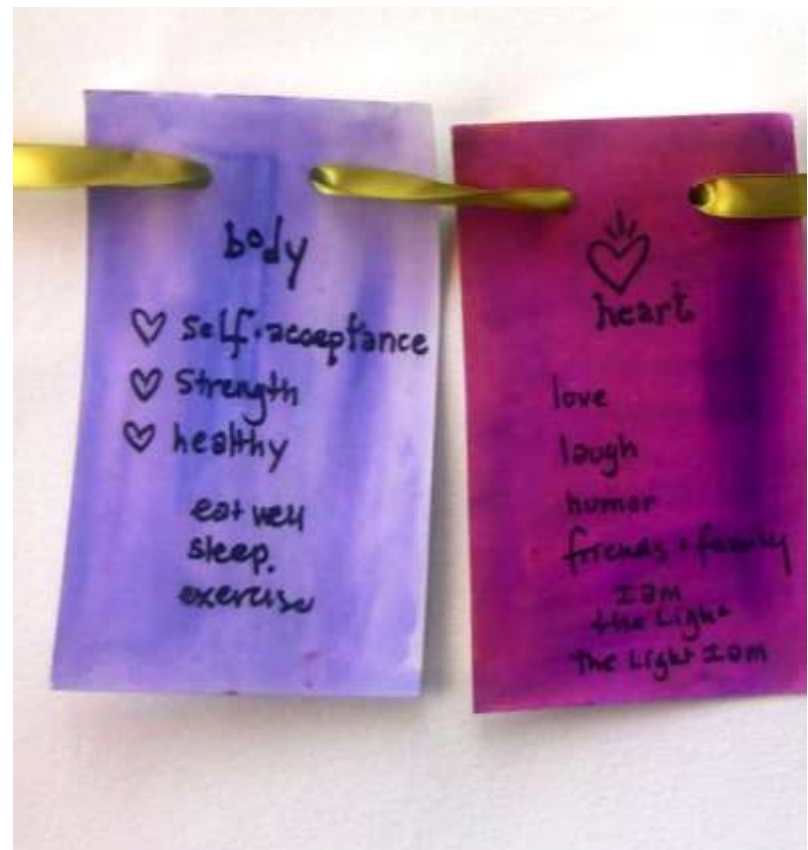 body
♡ self-acceptance
♡ strength
♡ healthy
eat well
sleep.
exercise
heart
love
laugh
humor
friends + family
I am
the Light
The Light I am